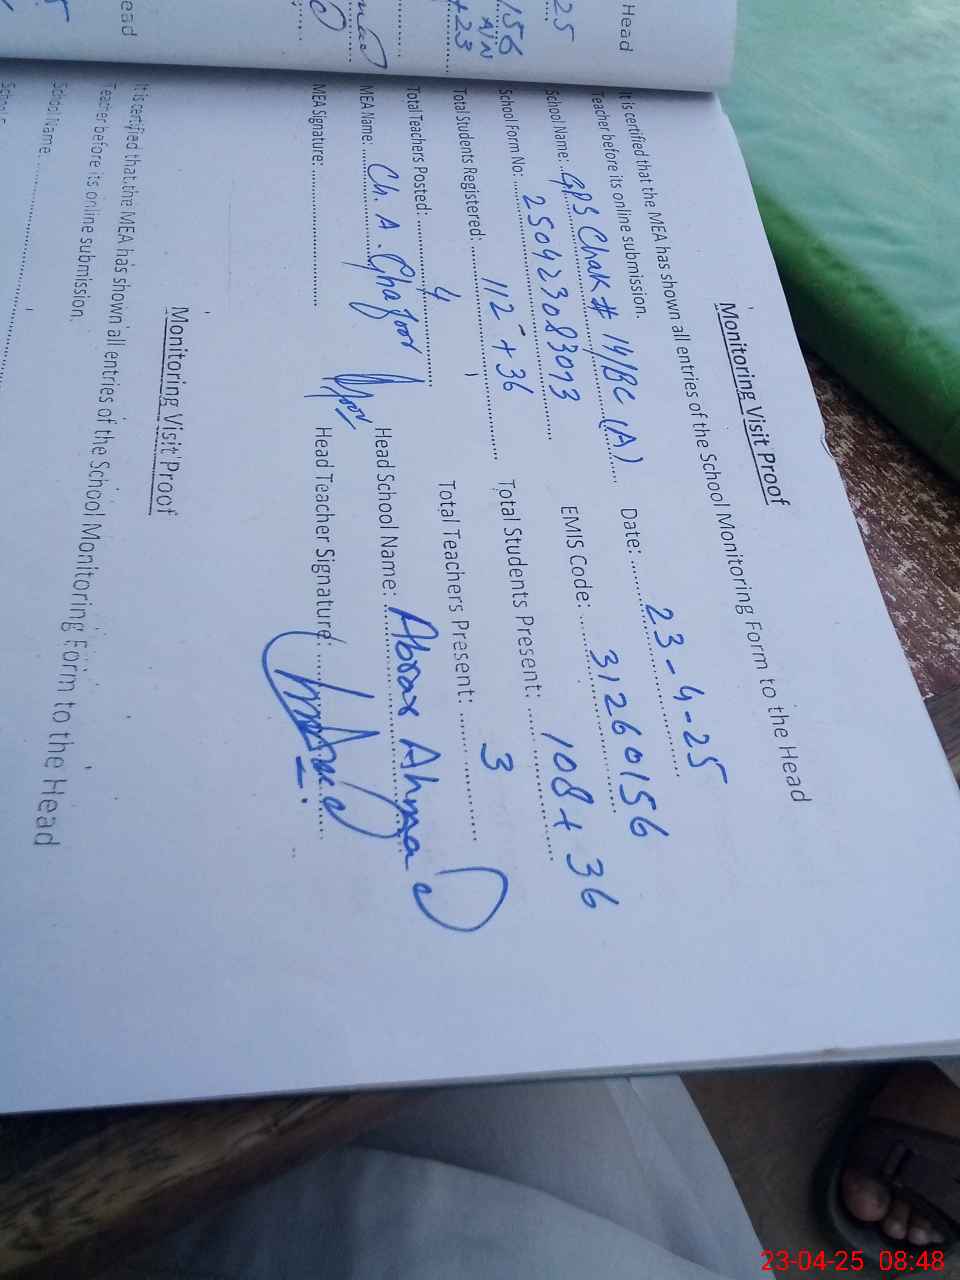 Monitoring Visit Proof
It is certified that the MEA has shown all entries of the School Monitoring Form to the Head
Teacher before its online submission.
School Name: GPS Chak # 14/BC (A) Date: 23-4-25
School Form No: 25042308 EMIS Code: 31260156
Total Students Registered: 112 + 36 Total Students Present: 108 + 36
Total Teachers Posted: 4 Total Teachers Present: 3
MEA Name: Ch. A. Ghafoor Head School Name: Abrar Ahmad
MEA Signature: Head Teacher Signature:
Monitoring Visit Proof
It is certified that the MEA has shown all entries of the School Monitoring Form to the Head
Teacher before its online submission.
School Name:
Head
25
156
+23
ead
23-04-25 08:48